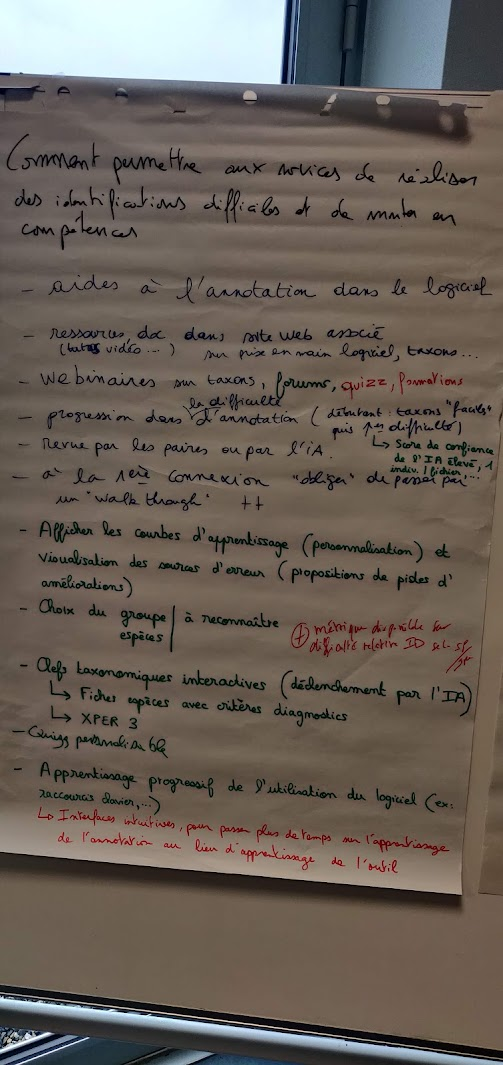 Comment permettre aux novices de réaliser
des identifications difficiles et de monter en
compétences
- aides à l'annotation dans le logiciel
- ressources, doc dans site web associé
(tutos vidéo ...) sur prise en main logiciel, taxons...
- webinaires sur taxons, forums, quizz, formations
la difficulté
- progression dans d'annotation (débutant : taxons "faciles"
puis difficulté)
- Revue par les paires ou par l'iA.
↳ Score de confiance
de l'IA élevé, 1
indiv. / fichier...
- à la 1ère connexion "obliger" de passer par
un "walk through" ++
- Afficher les courbes d'apprentissage (personnalisation) et
visualisation des sources d'erreur (propositions de pistes d'
améliorations)
- Choix du groupe | à reconnaître
espèces
+ métrique disponible sur
difficulté relative ID sel. sp
- Clefs taxonomiques interactives (déclenchement par l'IA)
↳ Fiches espèces avec critères diagnostics
↳ XPER 3
- Quizz personnalisable
- Apprentissage progressif de l'utilisation du logiciel (ex:
raccourcis clavier,...)
↳ Interfaces intuitives, pour passer plus de temps sur l'apprentissage
de l'annotation au lieu d'apprentissage de l'outil